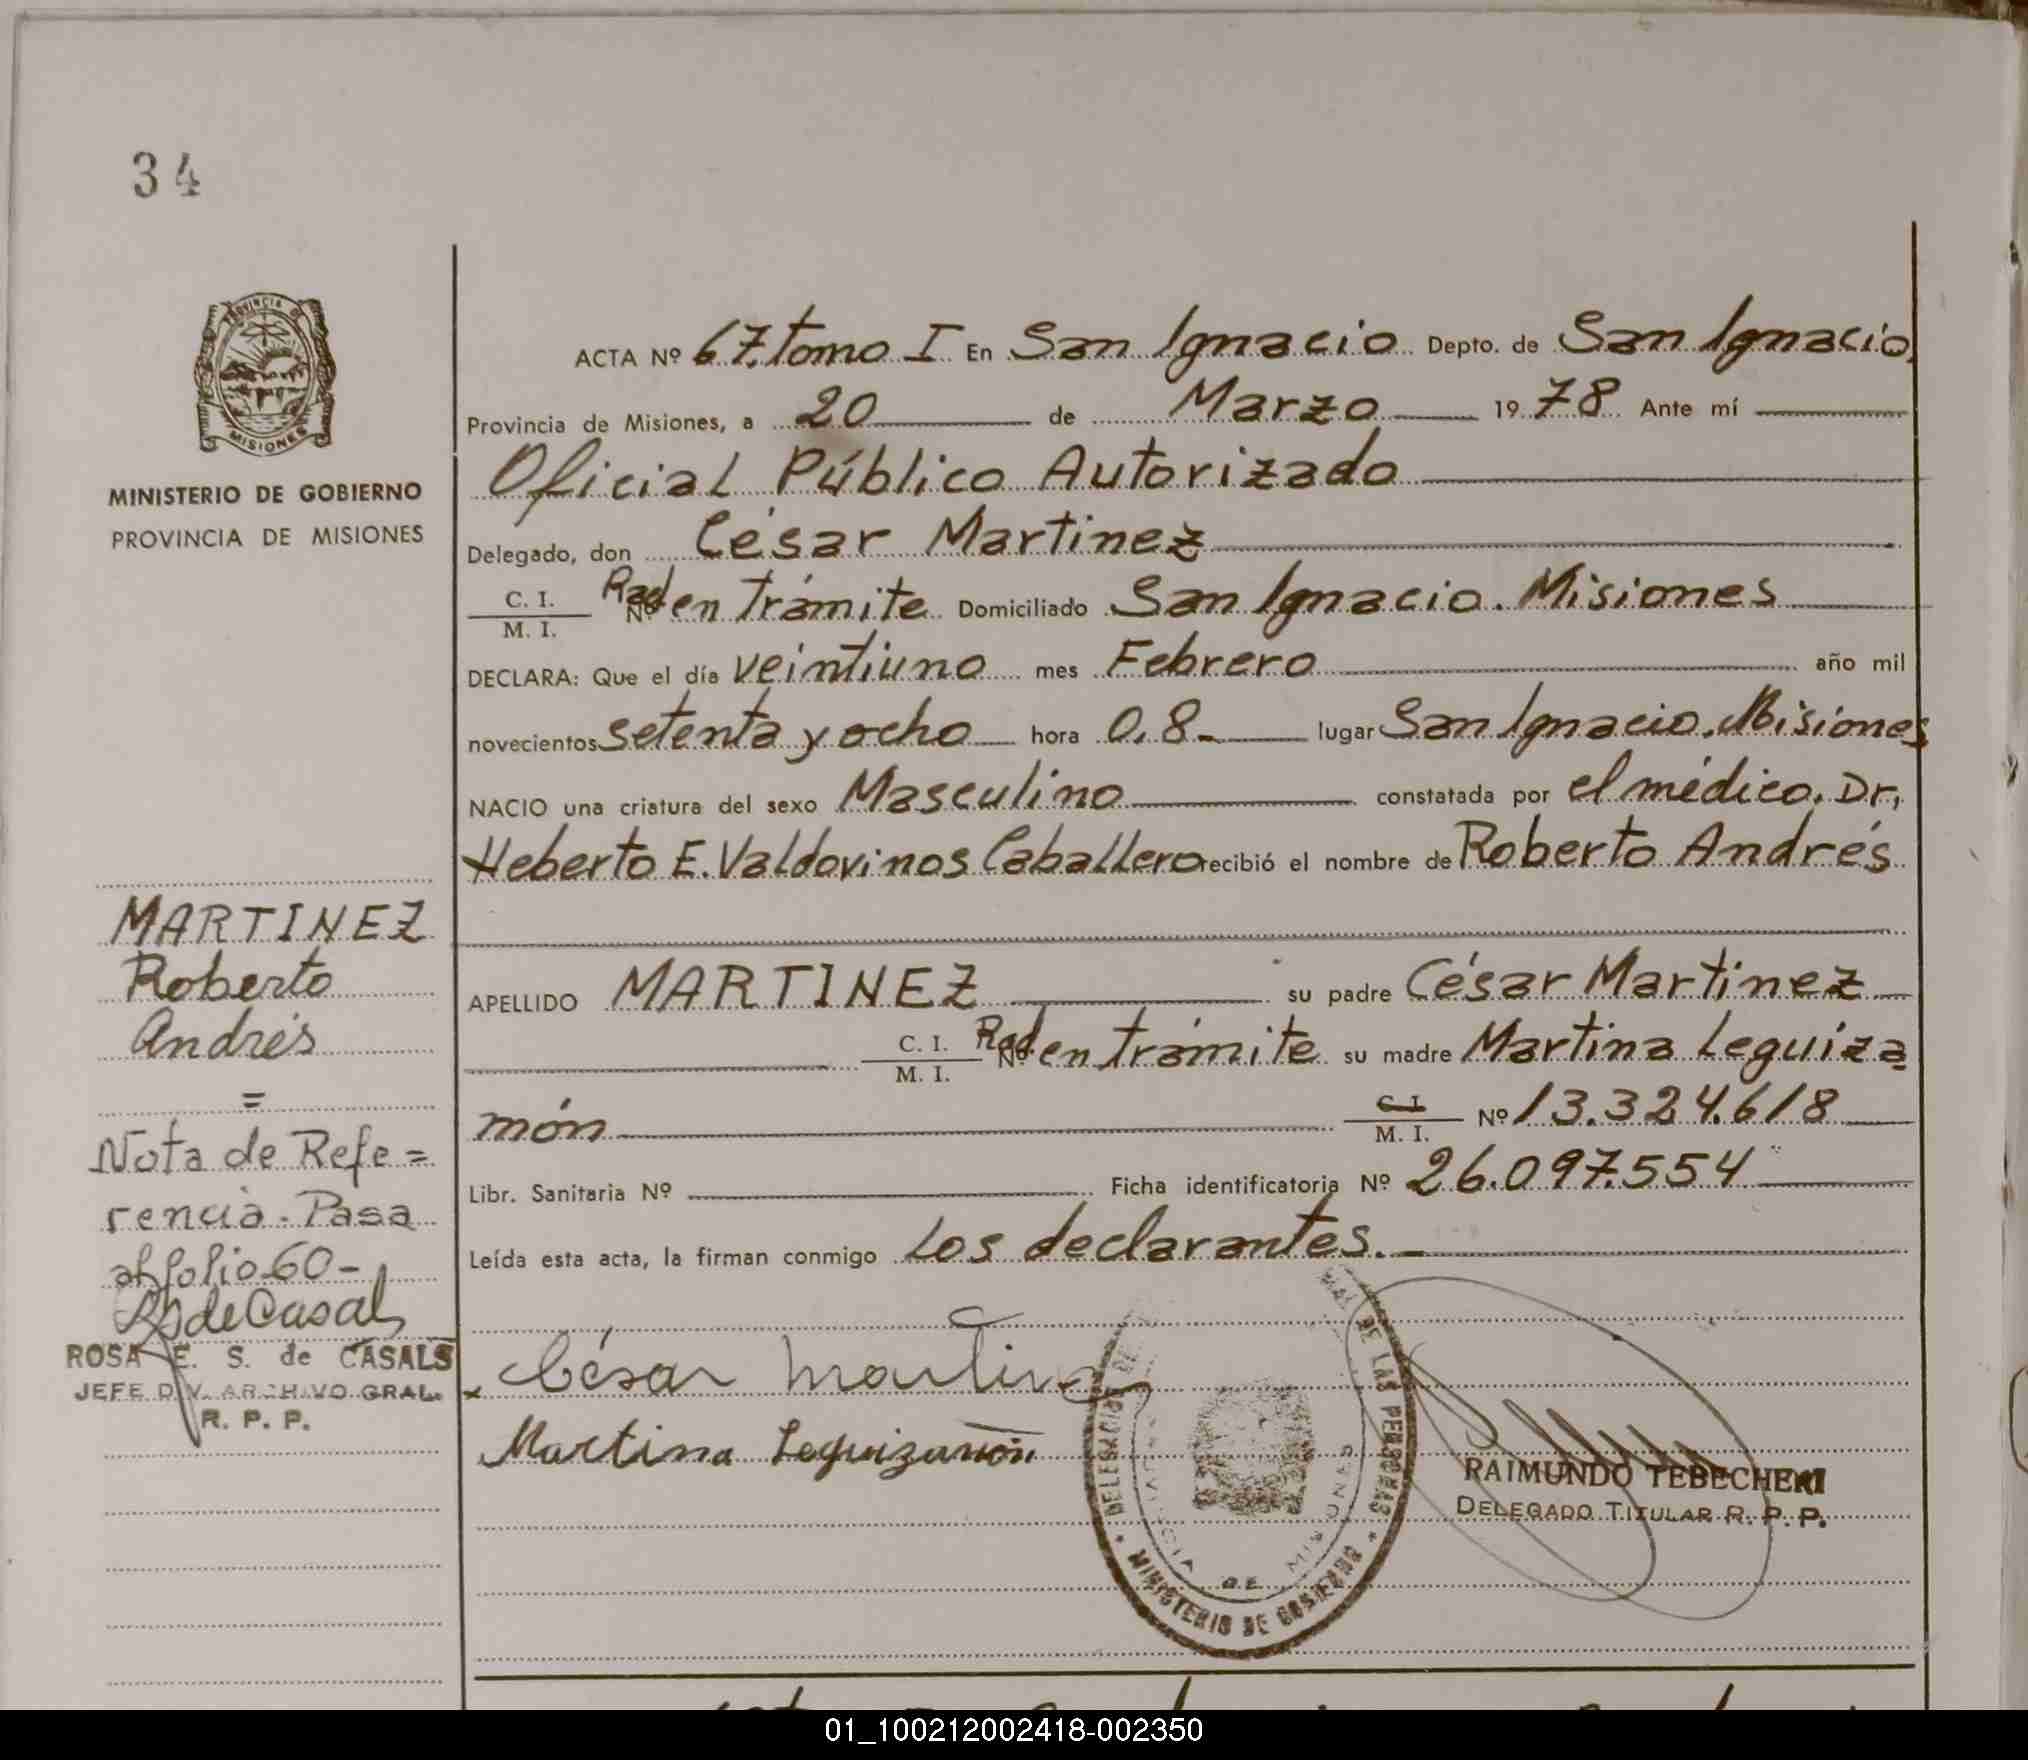 34
PROVINCIA DE
MISIONES
MINISTERIO DE GOBIERNO
PROVINCIA DE MISIONES
ACTA Nº 67. tomo I En San Ignacio Depto. de San Ignacio,
Provincia de Misiones, a 20 de Marzo 1978 Ante mí
Oficial Público Autorizado
Delegado, don César Martinez
C. I.
M. I. Nº Rad en Trámite Domiciliado San Ignacio. Misiones
DECLARA: Que el día veintiuno mes Febrero año mil
novecientos setenta y ocho hora 0.8.- lugar San Ignacio. Misiones
NACIO una criatura del sexo Masculino constatada por el médico. Dr.
Heberto E. Valdovinos Caballero recibió el nombre de Roberto Andrés
APELLIDO MARTINEZ su padre César Martinez
C. I.
M. I. Nº Rad. en trámite su madre Martina Leguiza
món C. I.
M. I. Nº 13.324.618
Libr. Sanitaria Nº Ficha identificatoria Nº 26.097.554
Leída esta acta, la firman conmigo Los declarantes. -
César Martinez
Martina Leguizamón
DE LAS PERSONAS
MINISTERIO DE GOBIERNO
DE MISIONES
RAIMUNDO TEBECHERI
DELEGADO TITULAR R. P. P.
MARTINEZ
Roberto
Andrés
=
Nota de Refe=
rencia. Pasa
al folio 60-
de Casals
ROSA E. S. de CASALS
JEFE DIV. ARCHIVO GRAL.
R. P. P.
01_100212002418-002350